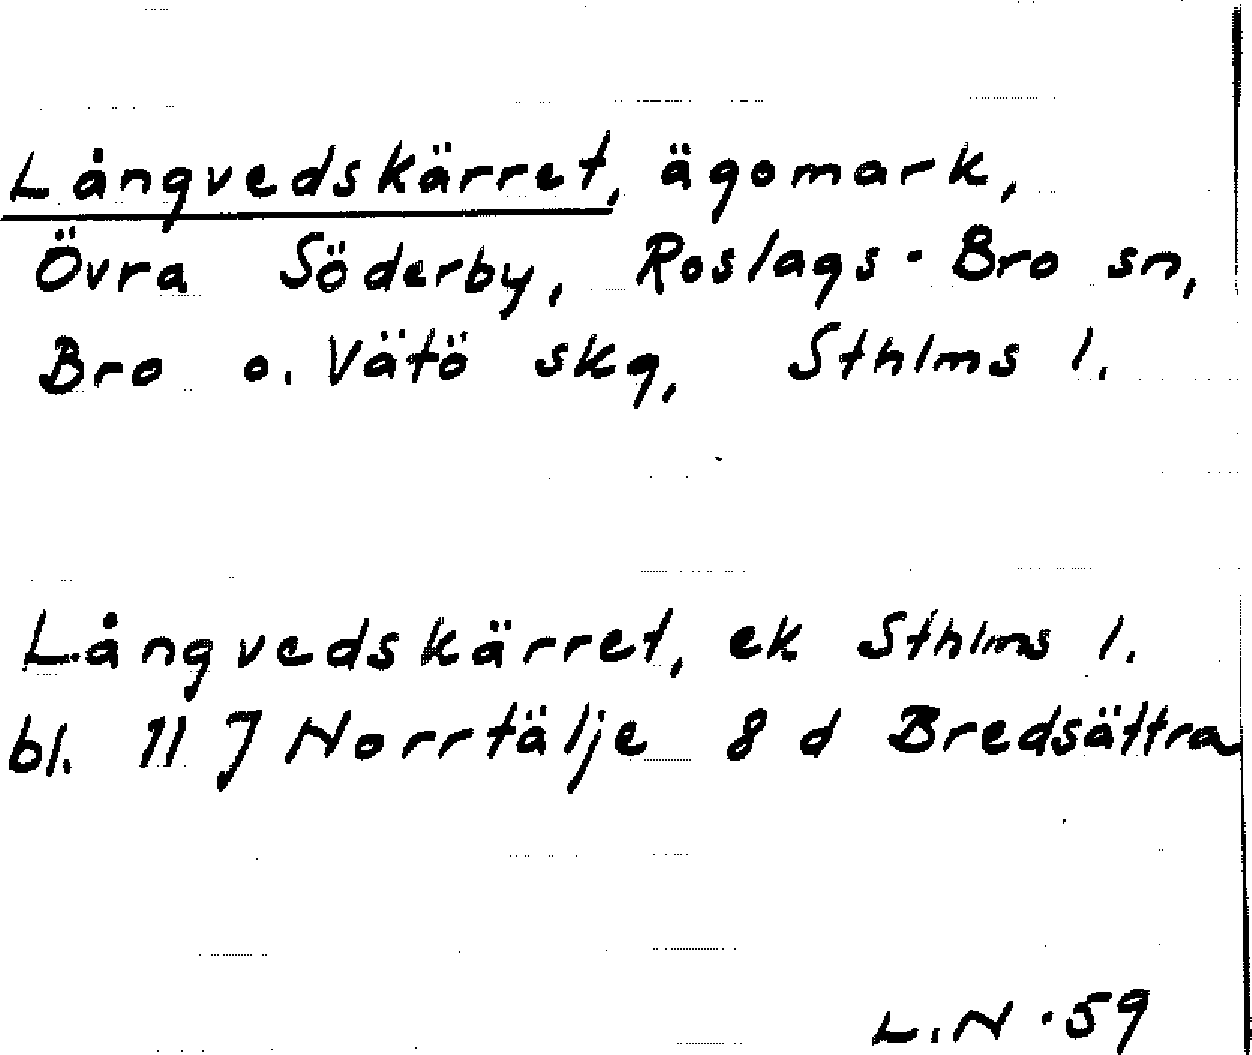 Långvedskärret, ägomark,
Övra Söderby, Roslags-Bro sn,
Bro o. Vätö skg, Sthlms l.
Långvedskärret, ek Sthlms l.
bl. 11 J Norrtälje 8 d Bredsättra
L.N -59